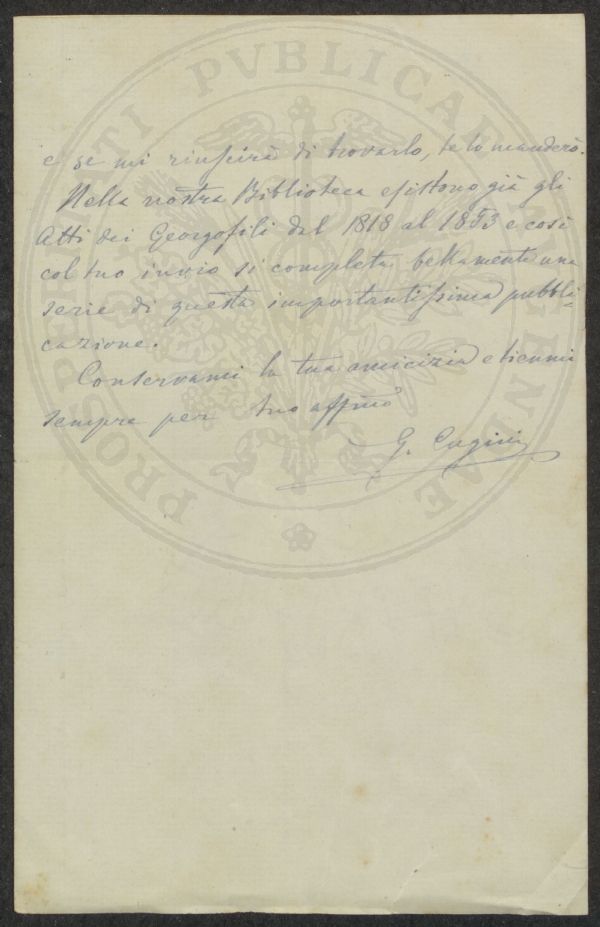 PROSPERITATI PVBLICAE AVGENDAE
e se mi riuscirà di trovarlo, te lo manderò.
Nella nostra Biblioteca esistono già gli
Atti dei Georgofili dal 1818 al 1853 e così
col tuo invio si completa bellamente una
serie di questa importantissima pubbli-
cazione.
Conservami la tua amicizia e tienmi
sempre per tuo affmo
G. Cugini